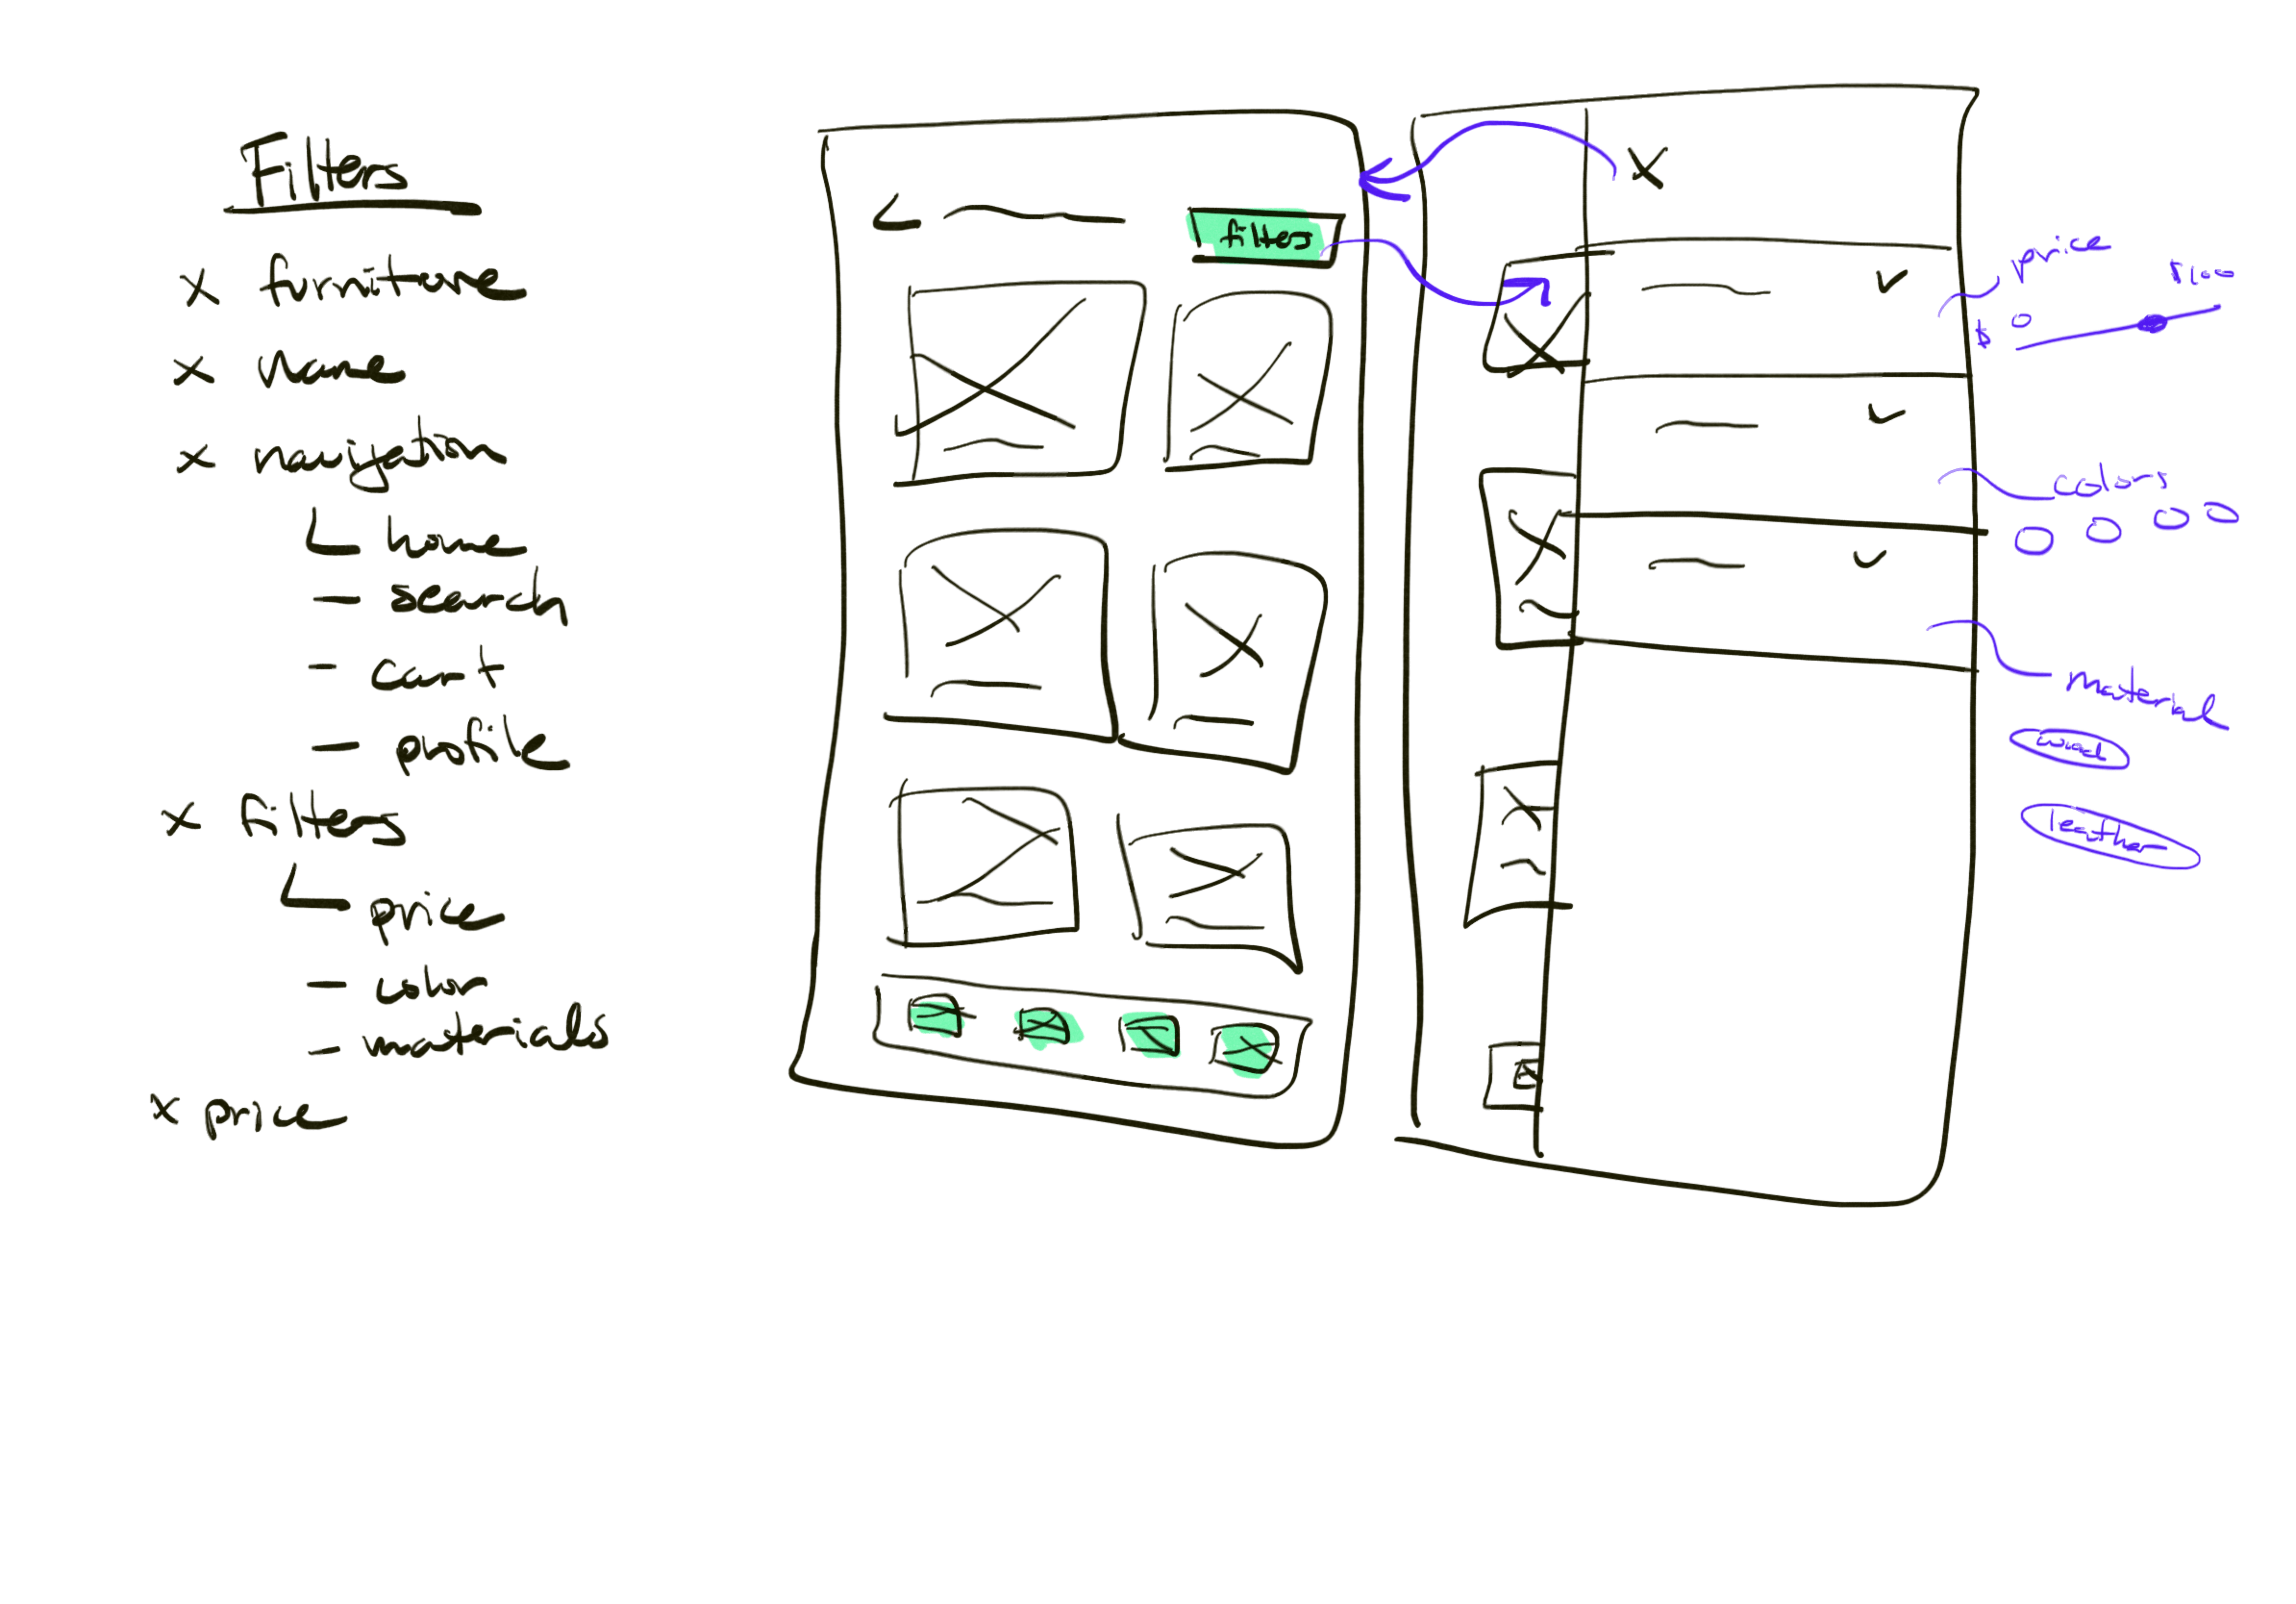 Filters
x furniture
x Name
x navigation
home
- search
- cart
- profile
x filters
price
- color
- materials
x price
filter
x
price
$ 0
$100
colors
material
wood
leather